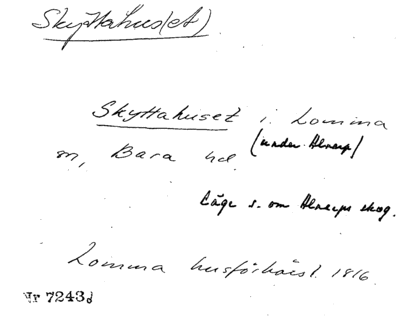 Skyttahus(et)
Skyttahuset i Lomma
(under Alnarp)
sn, Bara hd.
Läge s. om Alnarps skog.
Lomma husförhörsl. 1816.
Nr 7243d